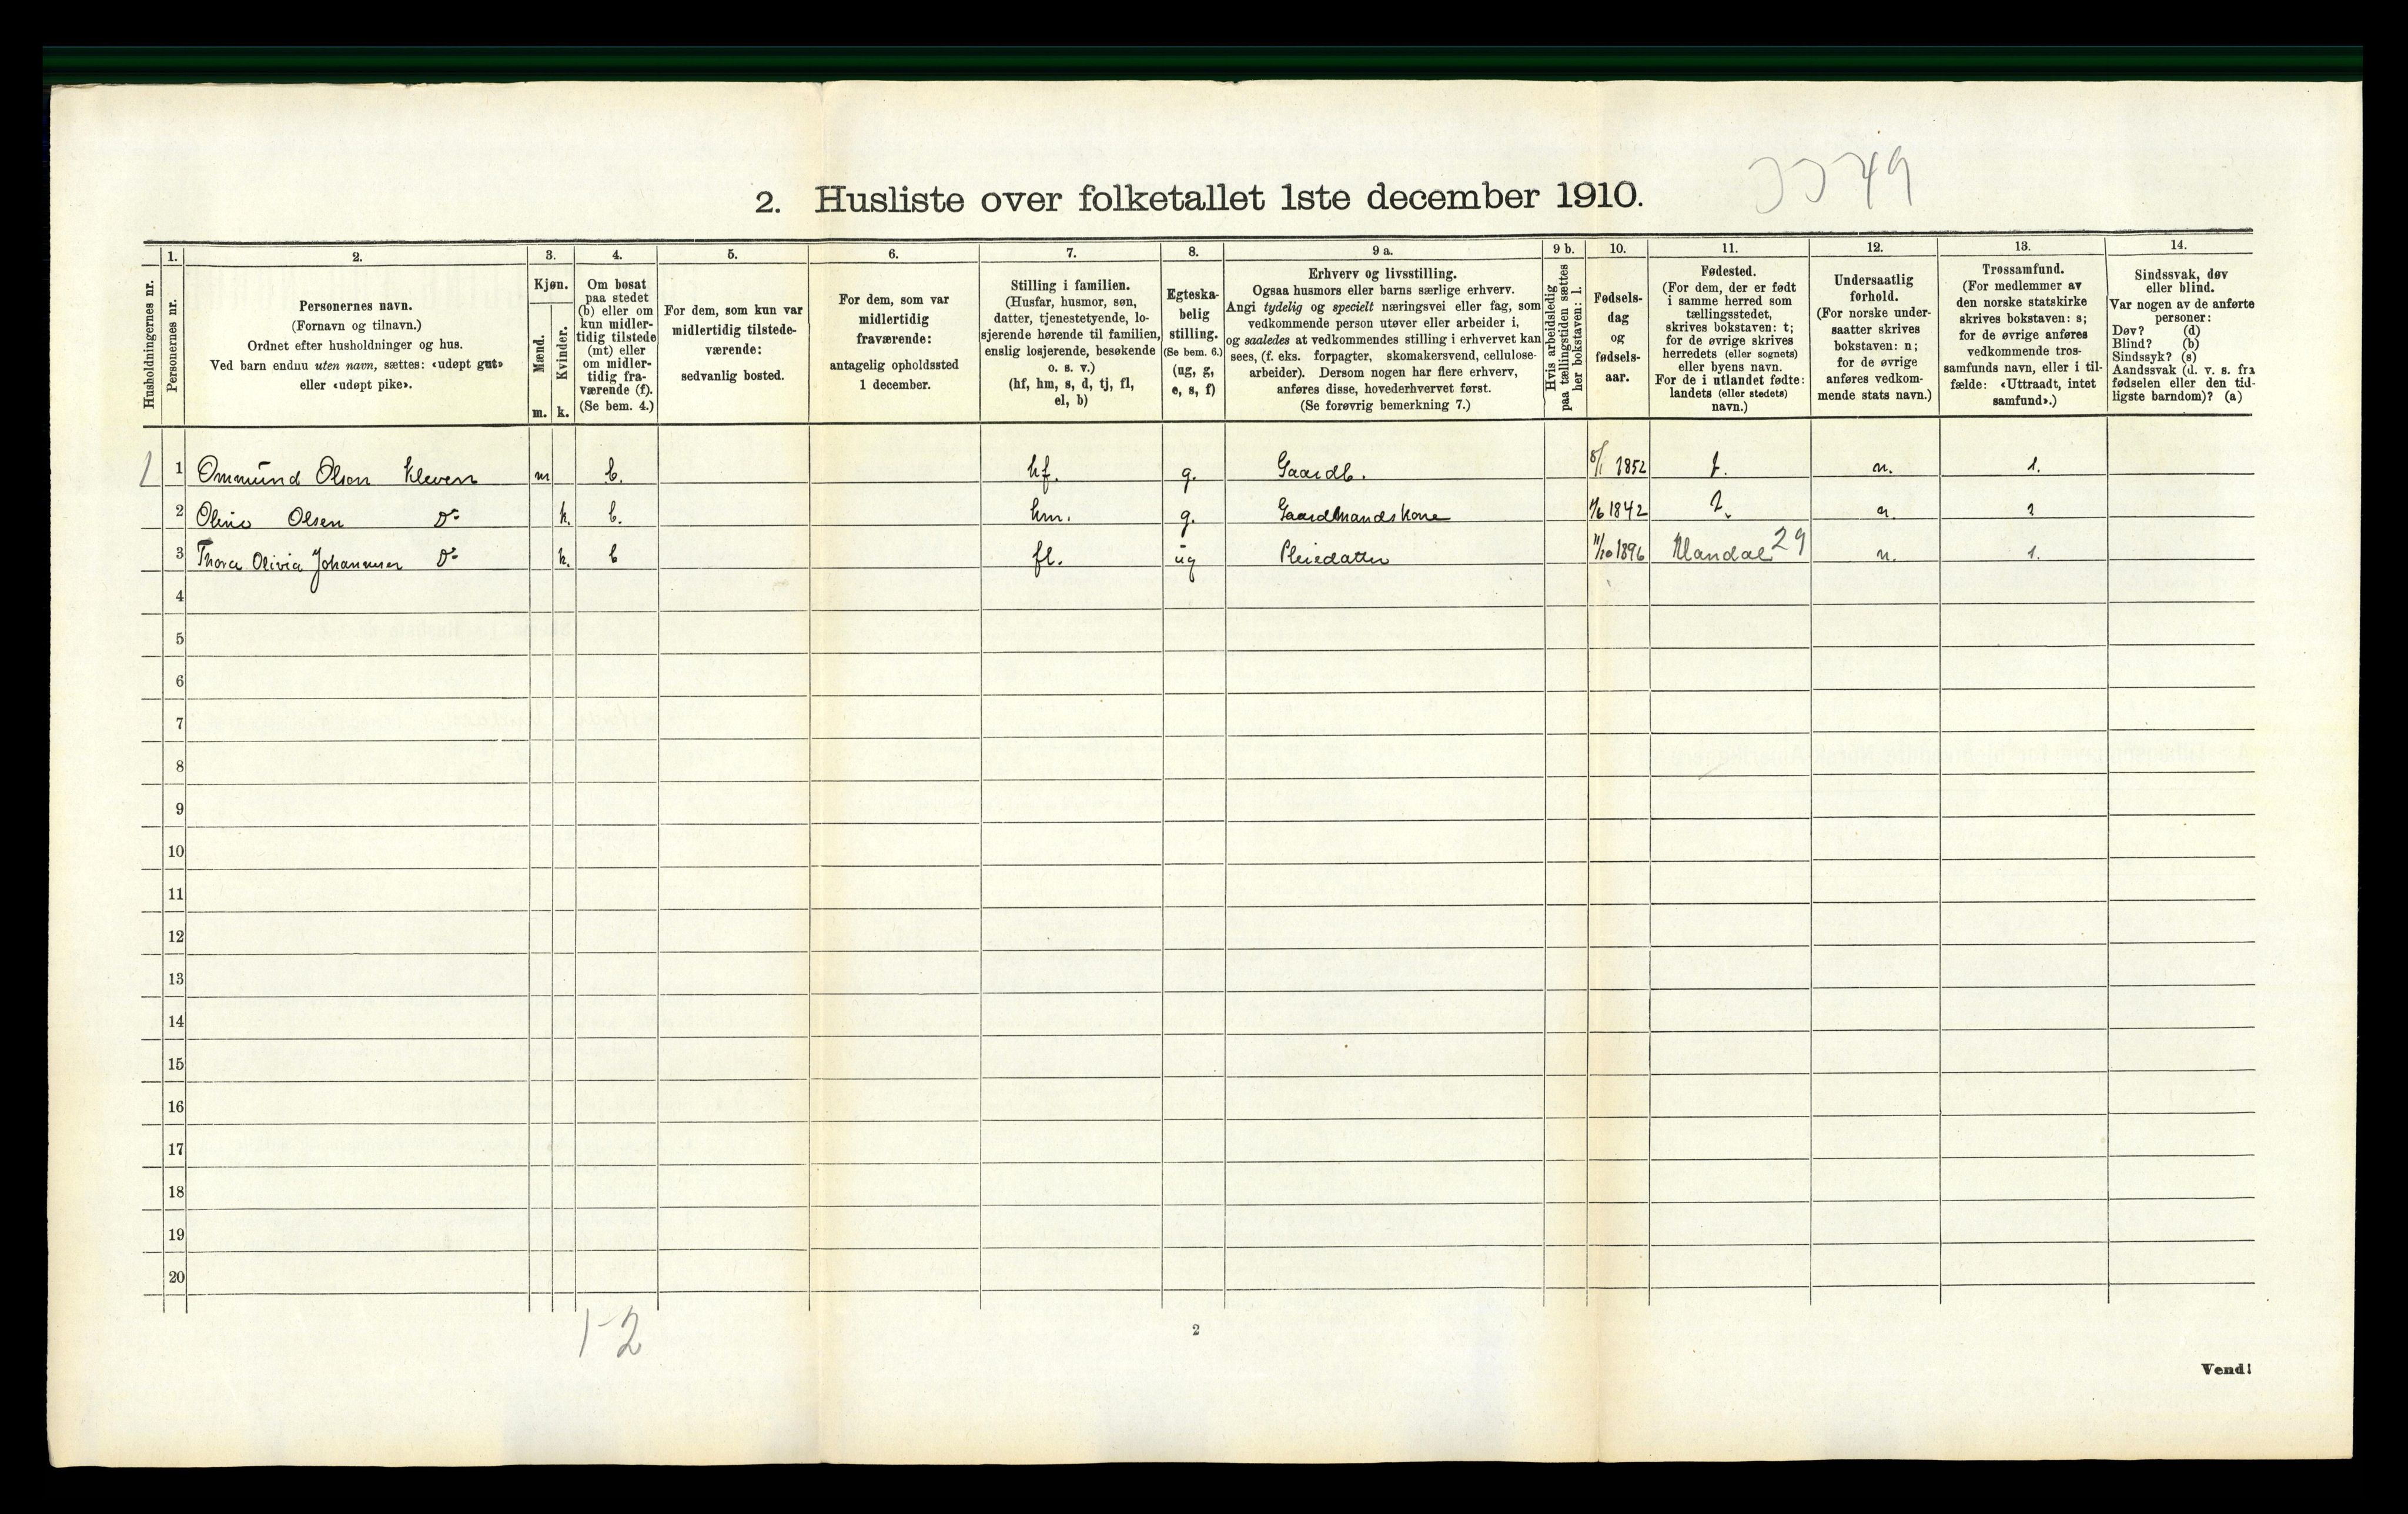 2. Husliste over folketallet 1ste december 1910.
49
Husholdningernes nr.
1.
Personernes nr.
2.
Personernes navn.
(Fornavn og tilnavn.)
Ordnet efter husholdninger og hus.
Ved barn endnu uten navn, sættes: «udøpt gut»
eller «udøpt pike».
3.
Kjøn.
Mænd.
Kvinder.
m. k.
4.
Om bosat
paa stedet
(b) eller om
kun midler-
tidig tilstede
(mt) eller
om midler-
tidig fra-
værende (f).
(Se bem. 4.)
5.
For dem, som kun var
midlertidig tilstede-
værende:
sedvanlig bosted.
6.
For dem, som var
midlertidig
fraværende:
antagelig opholdssted
1 december.
7.
Stilling i familien.
(Husfar, husmor, søn,
datter, tjenestetyende, lo-
sjerende hørende til familien,
enslig losjerende, besøkende
o. s. v.)
(hf, hm, s, d, tj, fl,
el, b)
8.
Egteska-
belig
stilling.
(Se bem. 6.)
(ug, g,
e, s, f)
9 a.
Erhverv og livsstilling.
Ogsaa husmors eller barns særlige erhverv.
Angi tydelig og specielt næringsvei eller fag, som
vedkommende person utøver eller arbeider i,
og saaledes at vedkommendes stilling i erhvervet kan
sees, (f. eks. forpagter, skomakersvend, cellulose-
arbeider). Dersom nogen har flere erhverv,
anføres disse, hovederhvervet først.
(Se forøvrig bemerkning 7.)
9 b.
Hvis arbeidsledig
paa tællingstiden sættes
her bokstaven: l.
10.
Fødsels-
dag
og
fødsels-
aar.
11.
Fødested.
(For dem, der er født
i samme herred som
tællingsstedet,
skrives bokstaven: t;
for de øvrige skrives
herredets (eller sognets)
eller byens navn.
For de i utlandet fødte:
landets (eller stedets)
navn.)
12.
Undersaatlig
forhold.
(For norske under-
saatter skrives
bokstaven: n;
for de øvrige
anføres vedkom-
mende stats navn.)
13.
Trossamfund.
(For medlemmer av
den norske statskirke
skrives bokstaven: s;
for de øvrige anføres
vedkommende tros-
samfunds navn, eller i til-
fælde: «Uttraadt, intet
samfund».)
14.
Sindssvak, døv
eller blind.
Var nogen av de anførte
personer:
Døv? (d)
Blind? (b)
Sindssyk? (s)
Aandssvak (d. v. s. fra
fødselen eller den tid-
ligste barndom)? (a)
1 1 Ommund Olsen Kleven m b. hf. g. Gaardb. 8/1 1852 t. n. 1.
2 Olsen Do k. b. hm. g. Gaardmandskone 1842 n.
3 Thora Olivia Johannesen Do k. b fl. ug Pleiedatter 11/10 1896 Mandal 29 n. 1.
4
5
6
7
8
9
10
11
12
13
14
15
16
17
18
19
20
1-2
2
Vend!